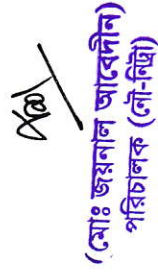 (মোঃ জয়নাল আবেদীন)
পরিচালক (নৌ-নিট্রা)